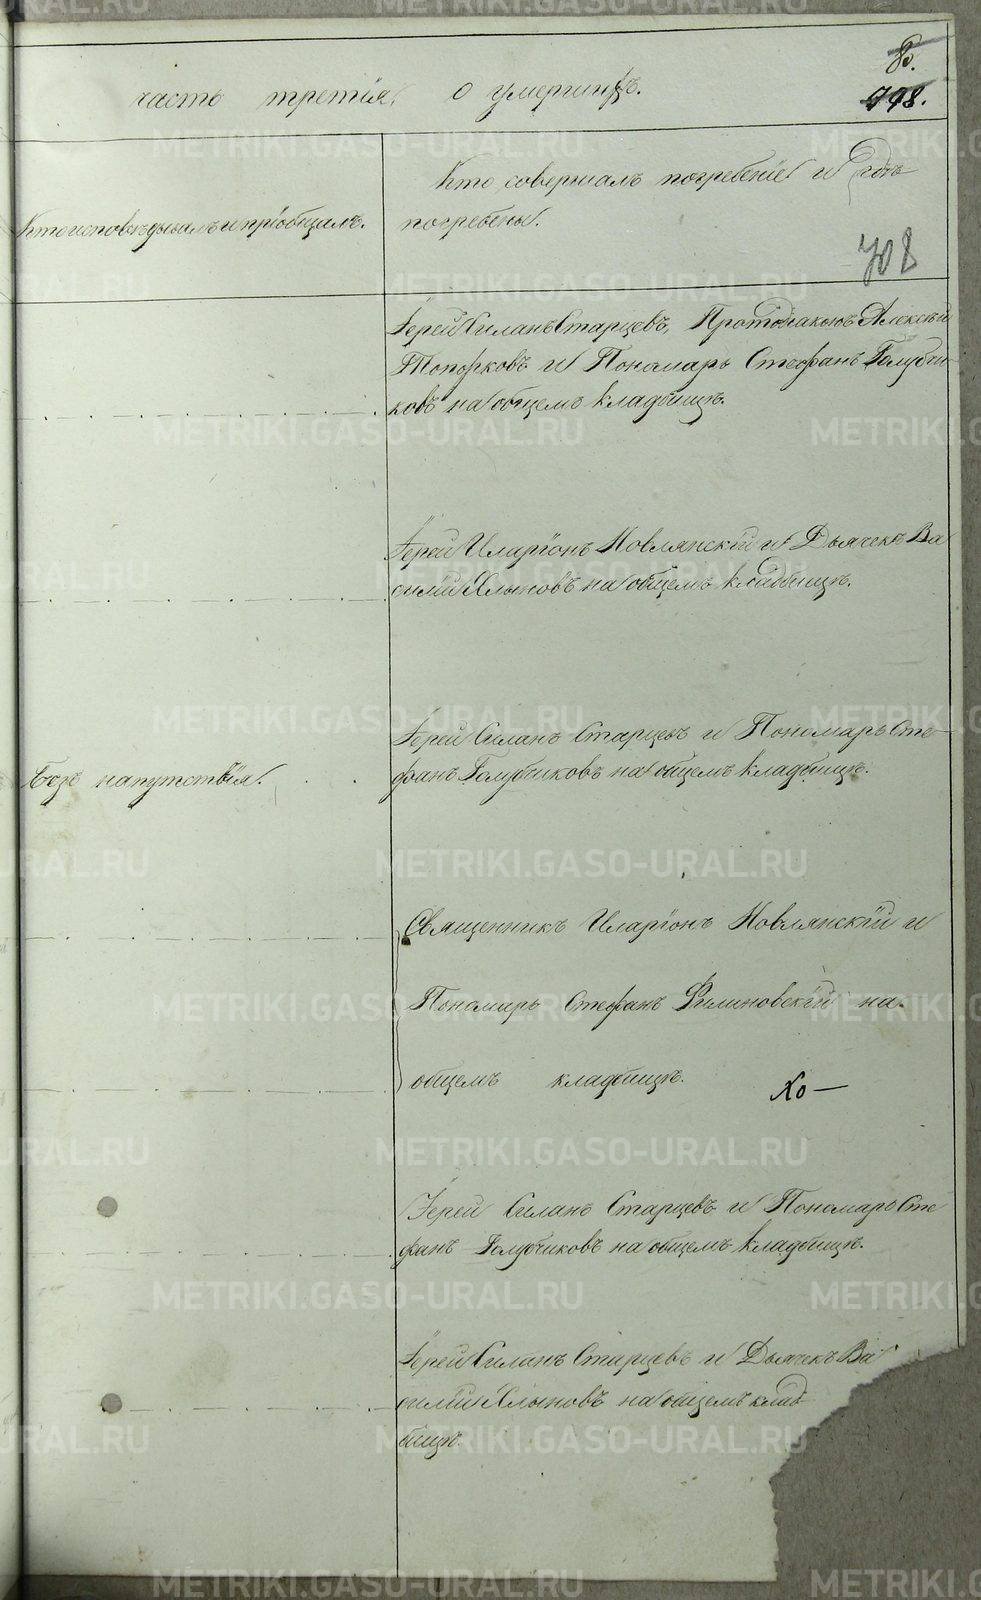 80.
798.
часть третія, о умершихъ.
Кто исповѣдывалъ и пріобщалъ.
Кто совершалъ погребеніе и гдѣ
погребены.
708
Іерей Силанъ Старцевъ, Протодіаконъ Алексѣй
Топорковъ и Пономарь Стефанъ Голубчи-
ковъ на общемъ кладбищѣ.
Іерей Иларіонъ Новлянскій и Дьячекъ Ва
силій Хлыновъ на общемъ кладбищѣ.
Іерей Силанъ Старцевъ и Пономарь Сте-
фанъ Голубчиковъ на общемъ кладбищѣ.
Безъ напутствія.
Священникъ Иларіонъ Новлянскій и
Пономарь Стефанъ Филиновскій на
общемъ кладбищѣ.
Хо—
Іерей Силанъ Старцевъ и Пономарь Сте
фанъ Голубчиковъ на общемъ кладбищѣ.
Іерей Силанъ Старцевъ и Дьячекъ Ва
силій Хлыновъ на общемъ клад
бищѣ.
METRIKI.GASO-URAL.RU